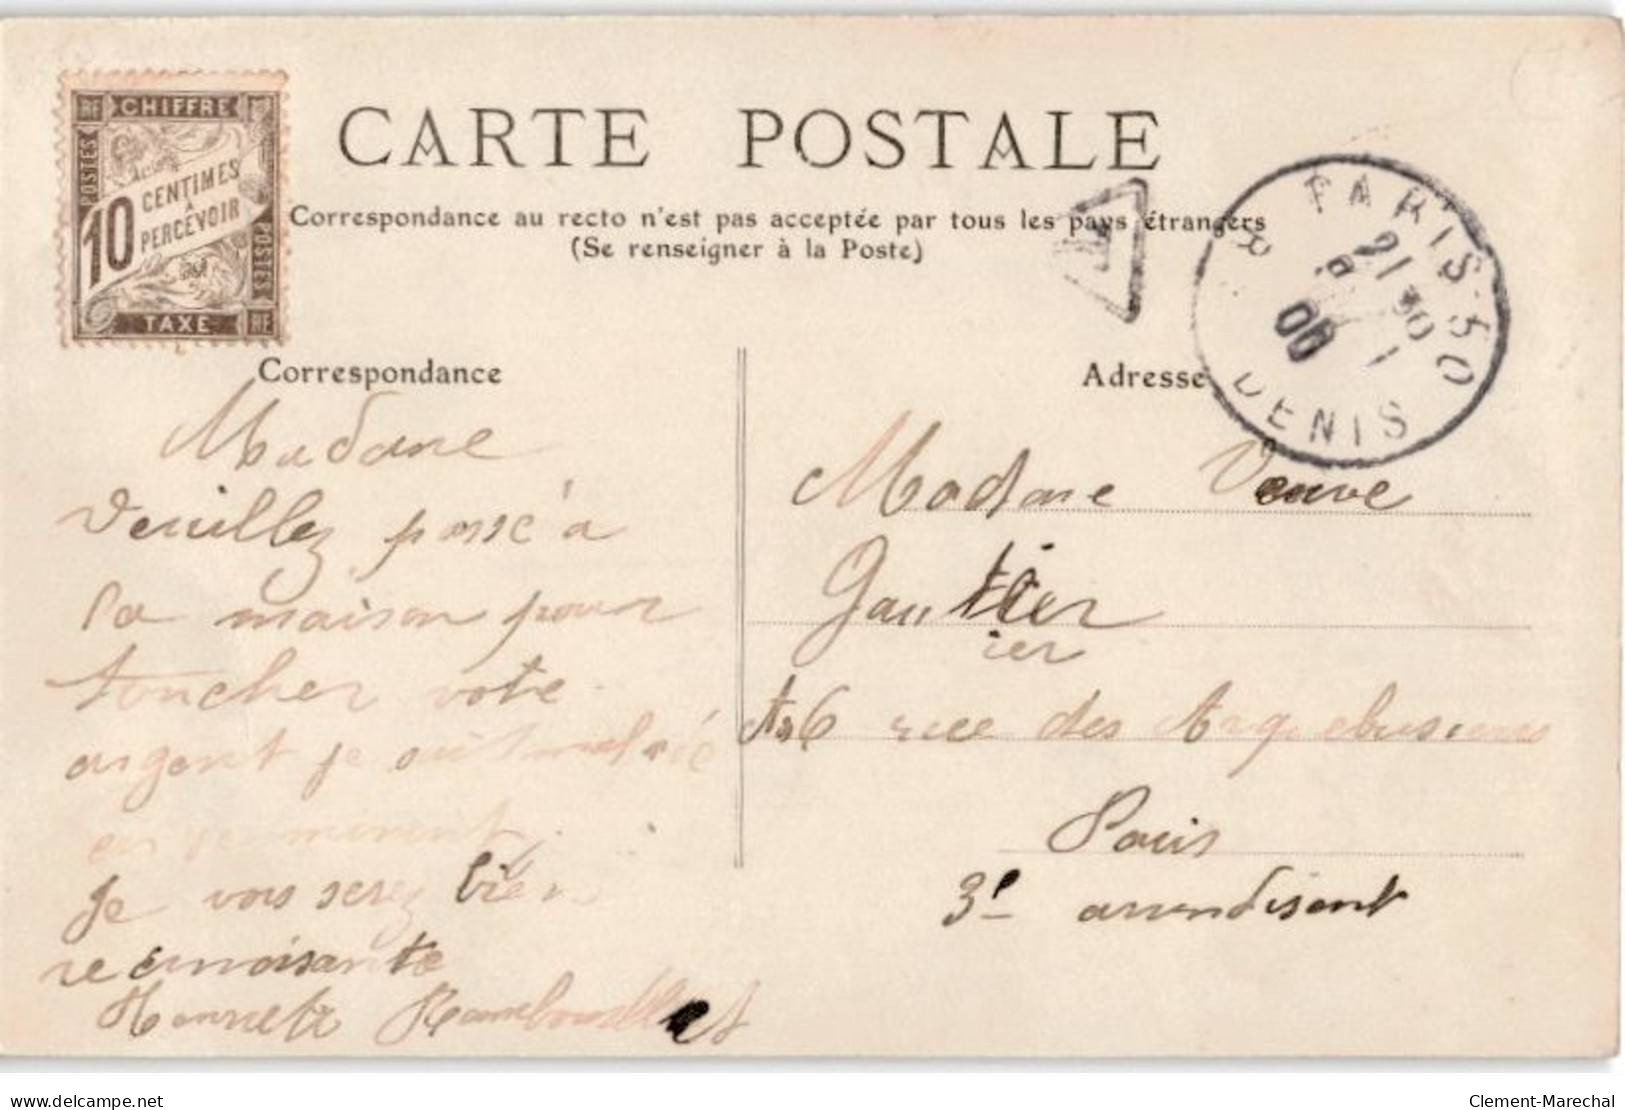 RF CHIFFRE
POSTES
10 CENTIMES
A
PERCEVOIR
POSTES
TAXE RF
CARTE POSTALE
Correspondance au recto n'est pas acceptée par tous les pays étrangers
(Se renseigner à la Poste)
T
PARIS-50
21 30
00
DENIS
Correspondance
Madame
Veuillez passé a
la maison pour
toucher votre
argent je suit
en se moment
je vous serez bien
Henriette Rambouillet
Adresse
Madame Veuve
Gautier
ier
6 rue des Arquebusiers
Paris
3e arrondisent
delcampe.net
Clement-Marechal